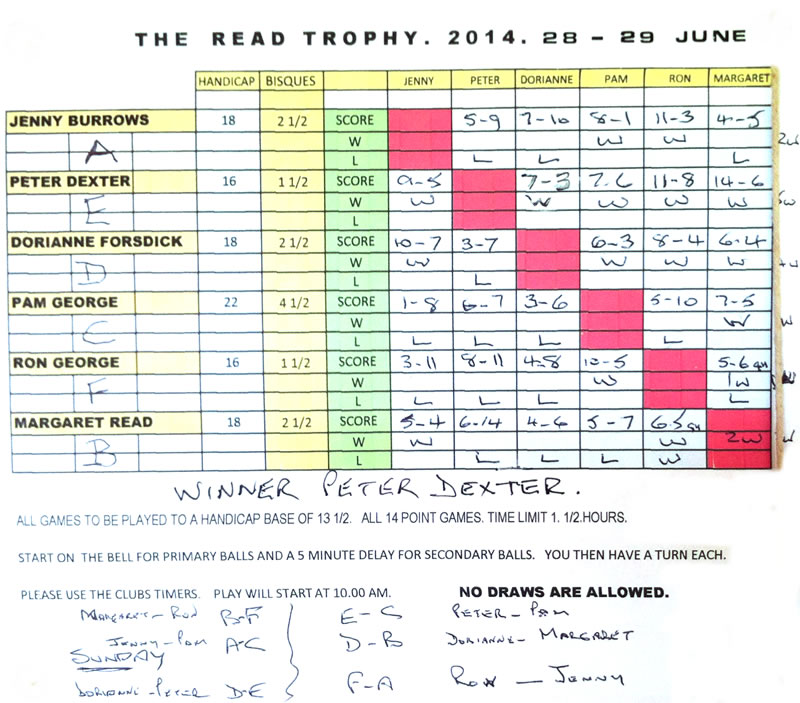 THE READ TROPHY. 2014. 28 – 29 JUNE
HANDICAP BISQUES JENNY PETER DORIANNE PAM RON MARGARET
JENNY BURROWS 18 2 1/2 SCORE 5-9 7-10 8-1 11-3 4-5
A W W W 2W
L L L L
PETER DEXTER 16 1 1/2 SCORE 9-5 7-3 7.6 11-8 14-6
E W W W W W W 5W
L
DORIANNE FORSDICK 18 2 1/2 SCORE 10-7 3-7 6-3 8-4 6.4
D W W W W W
L L
PAM GEORGE 22 4 1/2 SCORE 1-8 6-7 3-6 5-10 7-5
C W W W
L L L L L
RON GEORGE 16 1 1/2 SCORE 3-11 8-11 4-8 10-5 5-6
F W W 1W
L L L L L
MARGARET READ 18 2 1/2 SCORE 5-4 6-14 4-6 5-7 6.5
B W W W 2W
L L L L W
WINNER PETER DEXTER.
ALL GAMES TO BE PLAYED TO A HANDICAP BASE OF 13 1/2. ALL 14 POINT GAMES. TIME LIMIT 1. 1/2.HOURS.
START ON THE BELL FOR PRIMARY BALLS AND A 5 MINUTE DELAY FOR SECONDARY BALLS. YOU THEN HAVE A TURN EACH.
PLEASE USE THE CLUBS TIMERS. PLAY WILL START AT 10.00 AM. NO DRAWS ARE ALLOWED.
MARGARET – RON B-F E-C PETER – PAM
JENNY – PAM A-C D-B DORIANNE – MARGARET
SUNDAY
DORIANNE – PETER D-E F-A RON — JENNY